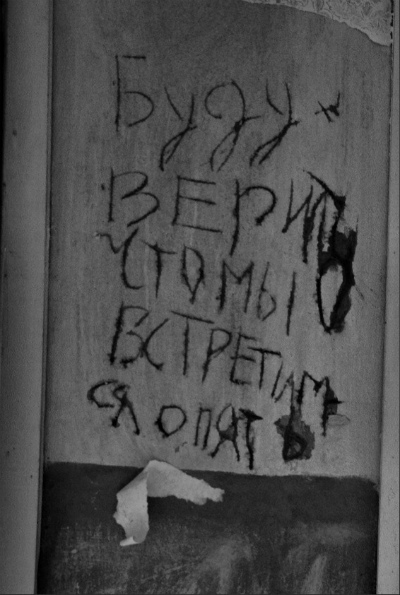 Буду
ВЕРИТЬ
ЧТО МЫ
ВСТРЕТИМ
СЯ ОПЯТЬ